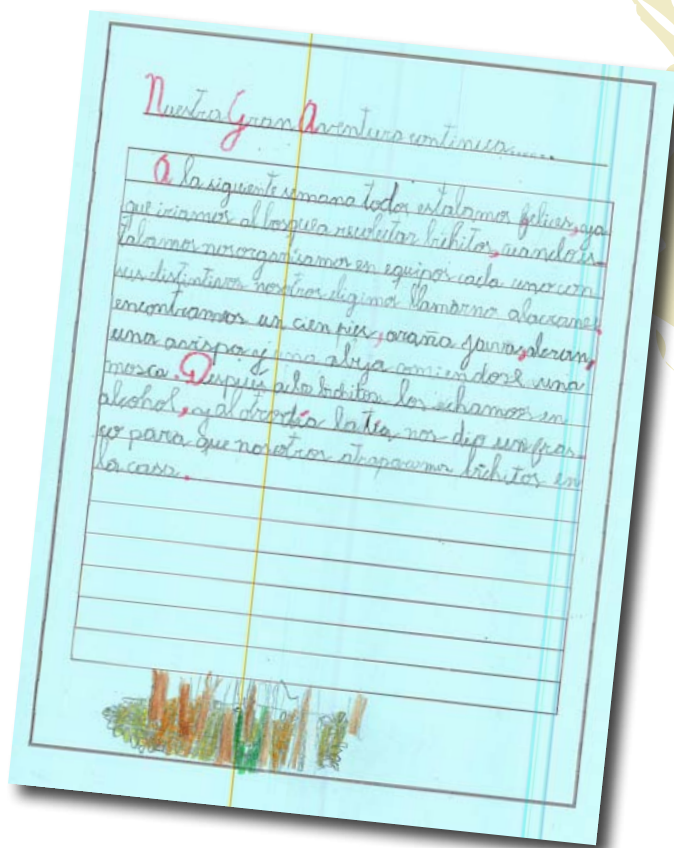 Nuestra Gran Aventura continua......
A la siguiente semana todos estabamos felices, ya
que iriamos al bosque a recolectar bichitos, cuando es-
tabamos nos organisamos en equipos cada uno con
sus distintivos nosotros digimos llamarno alacranes,
encontramos un cien pies, araña
una avispa y una abeja comiendose una
mosca. Despues a los bichitos los echamos en
alcohol, y al otro día la tía nos dio un fras-
co para que nosotros atraparamos bichitos en
la casa.